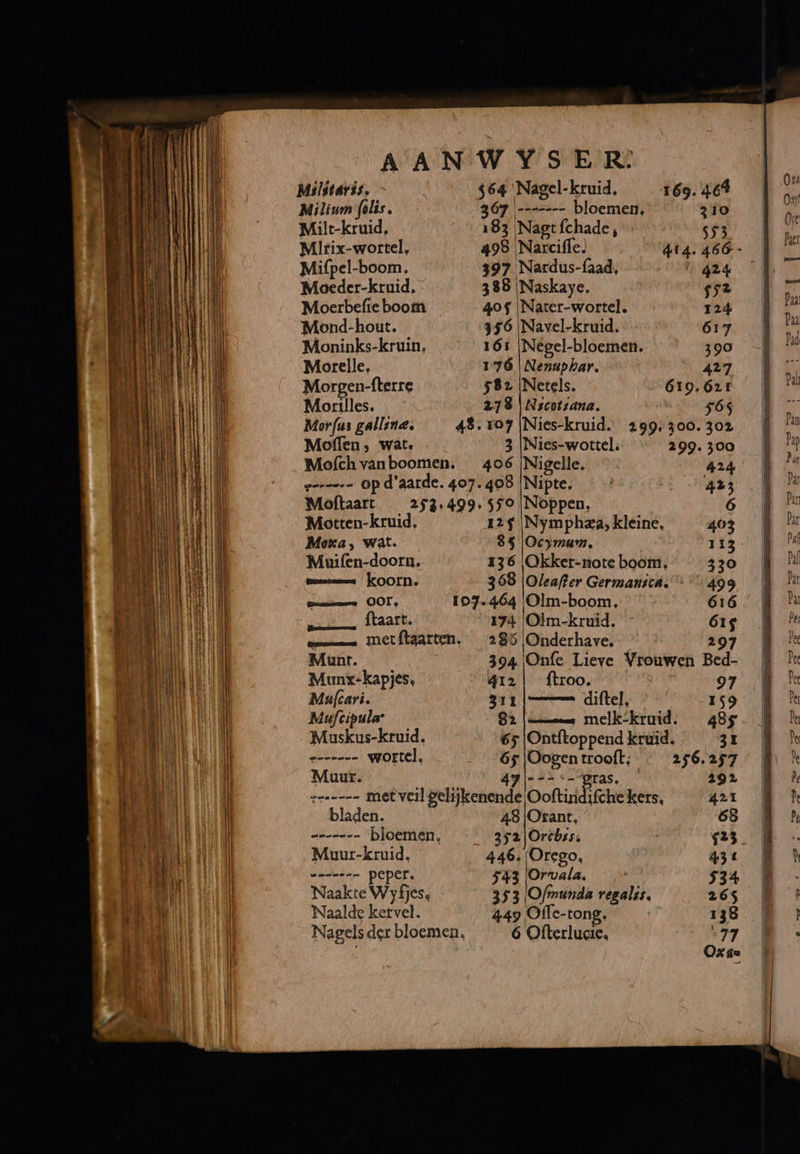 AANWYSER.
Militaris. 564
Milium ſolis. 367
Milt-kruid, 183
Mltix-wortel, 498
Miſpel-boom, 397
Moeder-kruid, 388
Moerbeſie boom 405
Mond-hout. 356
Moninks-kruin, 161
Morelle, 176
Morgen-ſterre 582
Morilles. 278
Morſus gallinæ. 48. 107
Moſſen, wat. 3
Moſch van boomen. 406
------- op d'aarde. 407. 408
Moſtaart 253. 499. 550
Motten-kruid, 125
Moxa, wat. 85
Muiſen-doorn, 136
—— koorn. 368
—— oor, 107. 464
—— ſtaart. 174
—— met ſtaarten. 286
Munt. 394
Munx-kapjes, 412
Muſcari. 311
Muſcipula 82
Muskus-kruid. 65
------- wortel, 65
Muur. 47
------- met veil gelijkenende
bladen. 48
------- bloemen, 352
Muur-kruid, 446.
------- peper. 543
Naakte Wyfjes, 353
Naalde kervel. 449
Nagels der bloemen, 6
Nagel-kruid, 169. 464
------- bloemen, 310
Nagt ſchade, 553
Narciſſe. 414. 466
Nardus-ſaad, 424
Naskaye. 552
Nater-wortel. 124
Navel-kruid. 617
Negel-bloemen. 390
Nenuphar. 427
Netels. 619. 621
Nicotiana. 565
Nies-kruid. 299. 300. 302
Nies-wottel. 299. 300
Nigelle. 424
Nipte. 423
Noppen, 6
Nymphæa, kleine, 403
Ocymum, 113
Okker-note boom, 330
Oleaſter Germanica. 499
Olm-boom. 616
Olm-kruid. 615
Onderhave. 297
Onſe Lieve Vrouwen Bed-
ſtroo. 97
—— diſtel, 159
—— melk-kruid. 485
Ontſtoppend kruid. 31
Oogen trooſt; 256. 257
------- gras, 292
Ooſtindiſche kers, 421
Orant, 68
Orchis. 523
Orego, 431
Orvala. 534
Oſmunda regalis. 265
Oſſe-tong. 138
Oſterlucie, 77